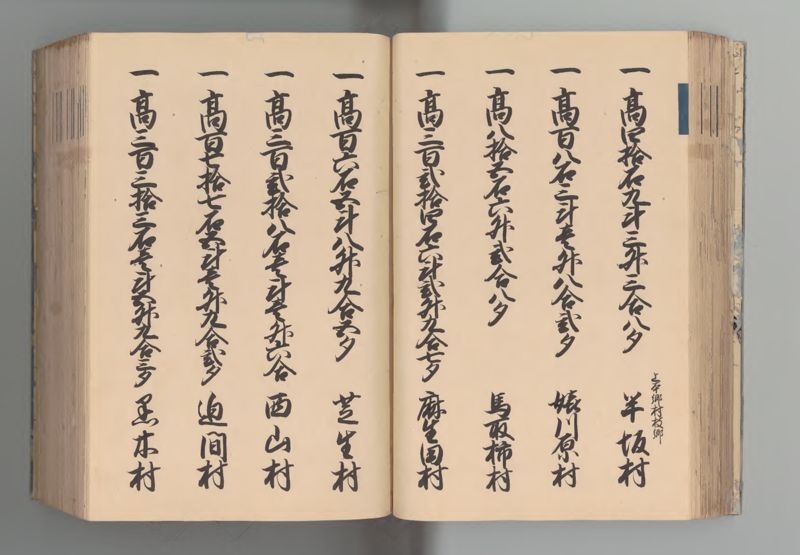 一 高四拾石九斗三升三合八夕
上本郷村枝郷
半坂村
一 高百八石三斗壱升八合弐夕
川原村
一 高八拾五石六升弐合八夕
馬取柿村
一 高三百弐拾四石八斗弐升九合七夕
麻生田村
一 高百六石五斗八升九合五夕
芝生村
一 高三百弐拾八石壱斗壱升六合
西山村
一 高百七拾七石五斗壱升九合弐夕
迫間村
一 高三百三拾三石壱斗五升九合三夕
黒木村